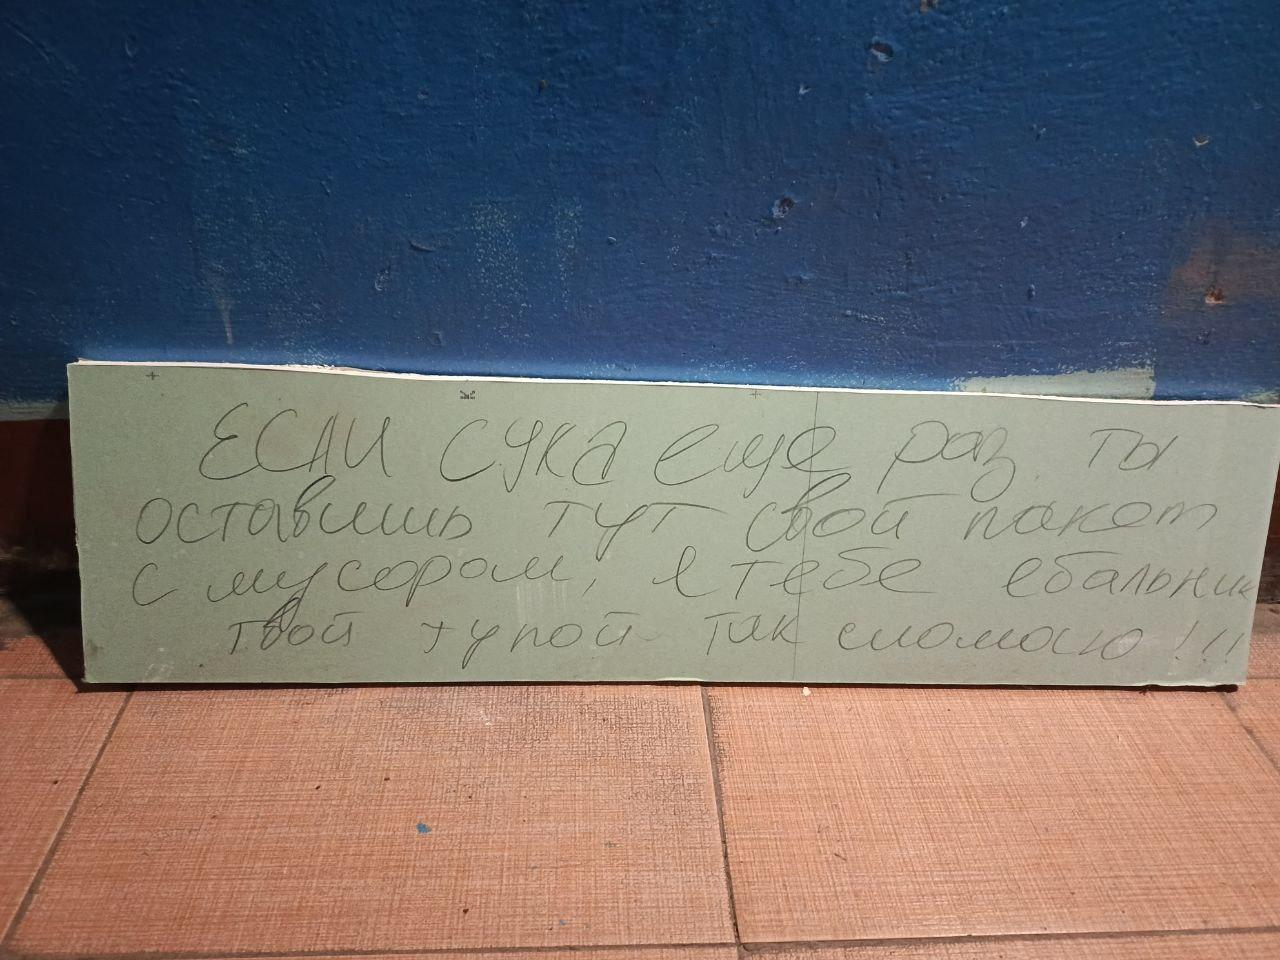 ЕСЛИ СУКА еще раз ты
оставишь тут свой пакет
с мусором, я тебе ебальник
твой тупой так сломаю!!!